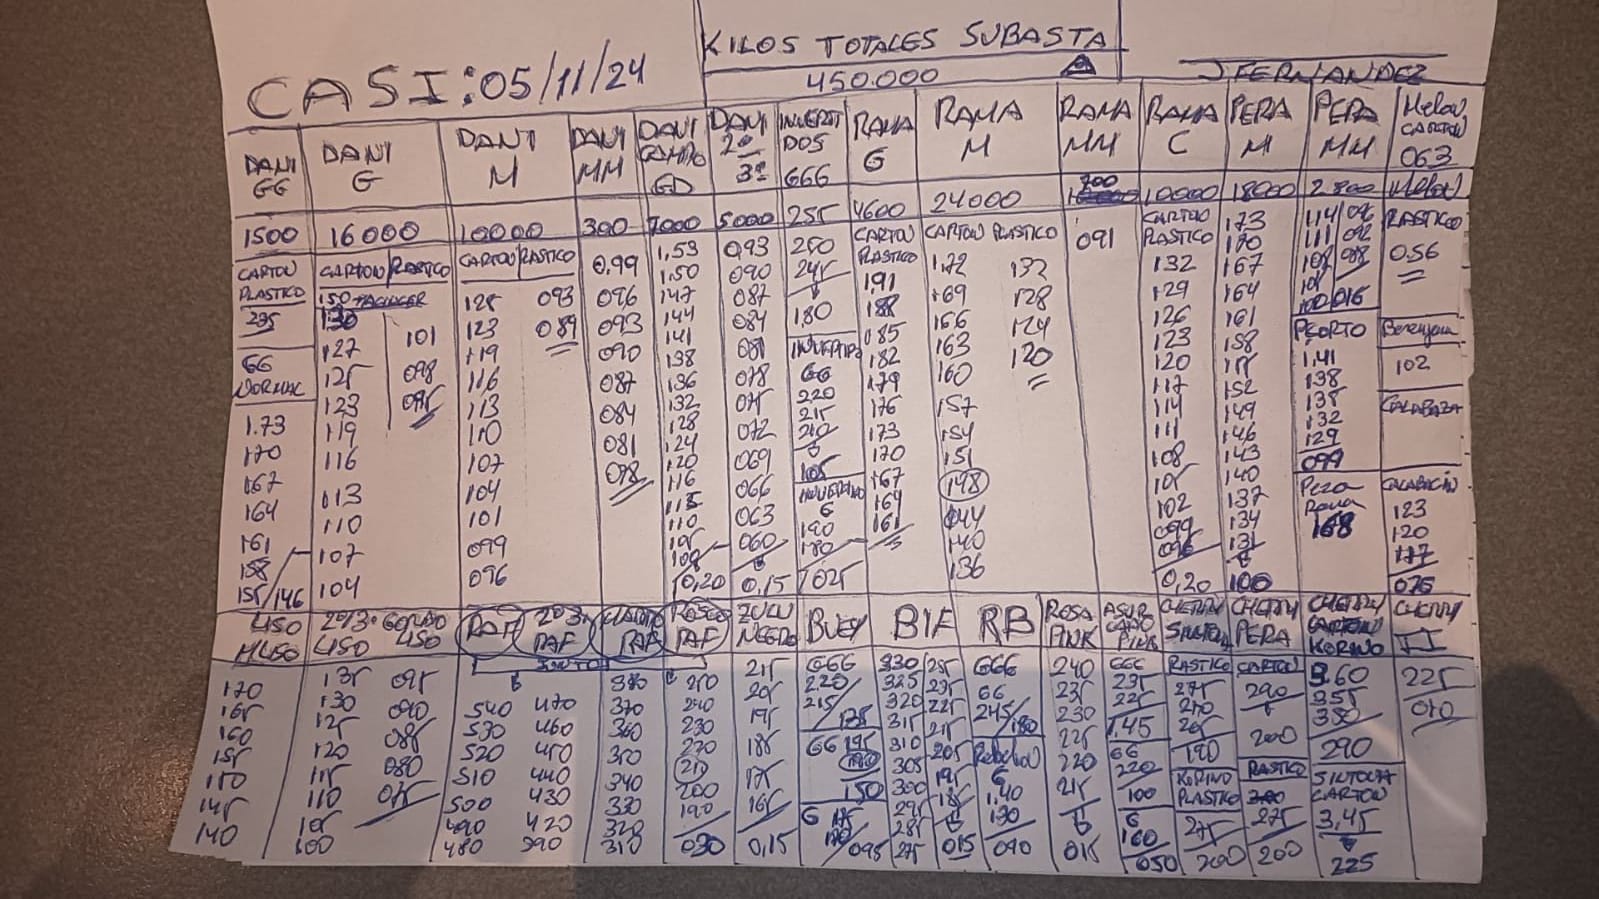 KILOS TOTALES SUBASTA
CASI: 05/11/24
450.000
J FERNANDEZ
DANI GG
DANI G
DANI M
DANI MM
DANI CAMPO GD
DANI 2ª 3ª
INVERTIDOS GGG
RAMA G
RAMA M
RAMA MM
RAMA C
PERA M
PERA MM
Melon CARTON 063
1500
16000
10000
300
7000
5000
255
4600
24000
700
10000
18000
2800
Melon PLASTICO
0.56
CARTON PLASTICO
235
GG NORMAL
1.73
170
167
164
161
158
155/146
CARTON PLASTICO
150
130
127
125
123
119
116
113
110
107
104
101
098
095
CARTON PLASTICO
128
123
119
116
113
110
107
104
101
099
096
093
089
0,99
096
093
090
087
084
081
078
1,53
1,50
147
144
141
138
136
132
128
124
120
116
113
110
105
100
0,20
0,93
090
087
084
081
078
075
072
069
066
063
060
0,15
250
245
180
INVERTIDO GG
220
215
210
105
INVERTIDO G
190
180
025
CARTON PLASTICO
191
188
085
182
179
176
173
170
167
164
161
CARTON PLASTICO
1,72
169
166
163
160
157
154
151
148
144
140
136
132
128
124
120
091
CARTON PLASTICO
132
129
126
123
120
117
114
111
108
105
102
099
096
0,20
173
170
167
164
161
158
155
152
149
146
143
140
137
134
131
100
114/096
111/092
108/088
PCORTO
1,41
138
135
132
129
099
Pera Rama
168
Berenjena
102
CALABAZA
CALABACIN
123
120
117
075
LISO MLISO
170
165
160
155
150
145
140
2ª/3ª LISO
135
130
125
120
115
110
105
100
GORDO LISO
095
090
085
080
075
RAF
540
530
520
510
500
490
480
2ª 3ª RAF
470
460
450
440
430
420
290
CLARITO RAF
380
370
360
350
340
330
320
310
ROSCO RAF
250
240
230
220
210
200
190
030
ZULU NEGRO
215
205
195
185
175
165
0,15
BUEY
GGG
220
215/135
GG 195
190
150
G 175
170/095
BIF
330/255
325 235
320 225
315 215
310 205
305 195
300 185
295
285
275 015
RB
GGG
GG
245/180
Rebelion
G
1,40
130
090
ROSA PINK
240
235
230
225
220
215
015
ASURCADO PINK
GGG
235
225
1,45
GG
220
100
G
160
050
CHERRY SINTONIA
PLASTICO
275
270
265
190
KORINO PLASTICO
275
200
CHERRY PERA
CARTON
290
200
PLASTICO
275
200
CHERRY CARTON KORINO
3.60
355
350
290
SINTONIA CARTON
3,45
225
CHERRY
225
010